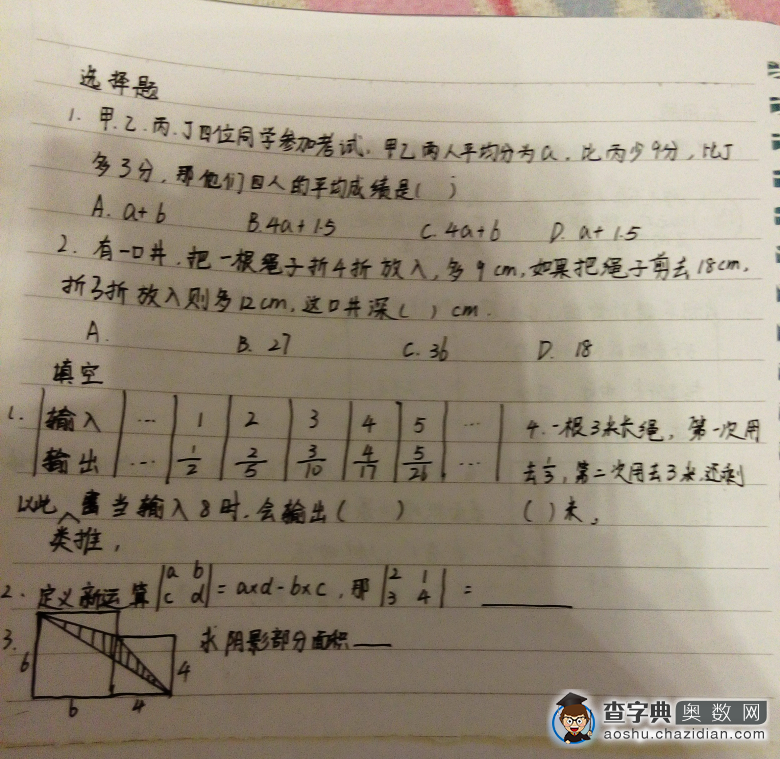 选择题
1. 甲.乙.丙.丁四位同学参加考试.甲乙两人平均分为a.比丙少9分,比丁
多3分,那他们四人的平均成绩是( )
A. a+6 B. 4a+1.5 C. 4a+6 D. a+1.5
2. 有一口井.把一根绳子折4折放入,多9cm,如果把绳子剪去18cm,
折3折放入则多12cm,这口井深( ) cm.
A. B. 27 C. 36 D. 18
填空
1. 输入 ... 1 2 3 4 5 ...
输出 ... 1/2 2/5 3/10 4/17 5/26 ...
以此类推,当输入8时.会输出( )
2. 定义新运算 |a b c d| = a×d-b×c,那 |2 1 3 4| =
3. 求阴影部分面积
6 4
6 4
4. 一根3米长绳,第一次用
去1/3,第二次用去3米,还剩
( )米。
查字典奥数网
aoshu.chazidian.com